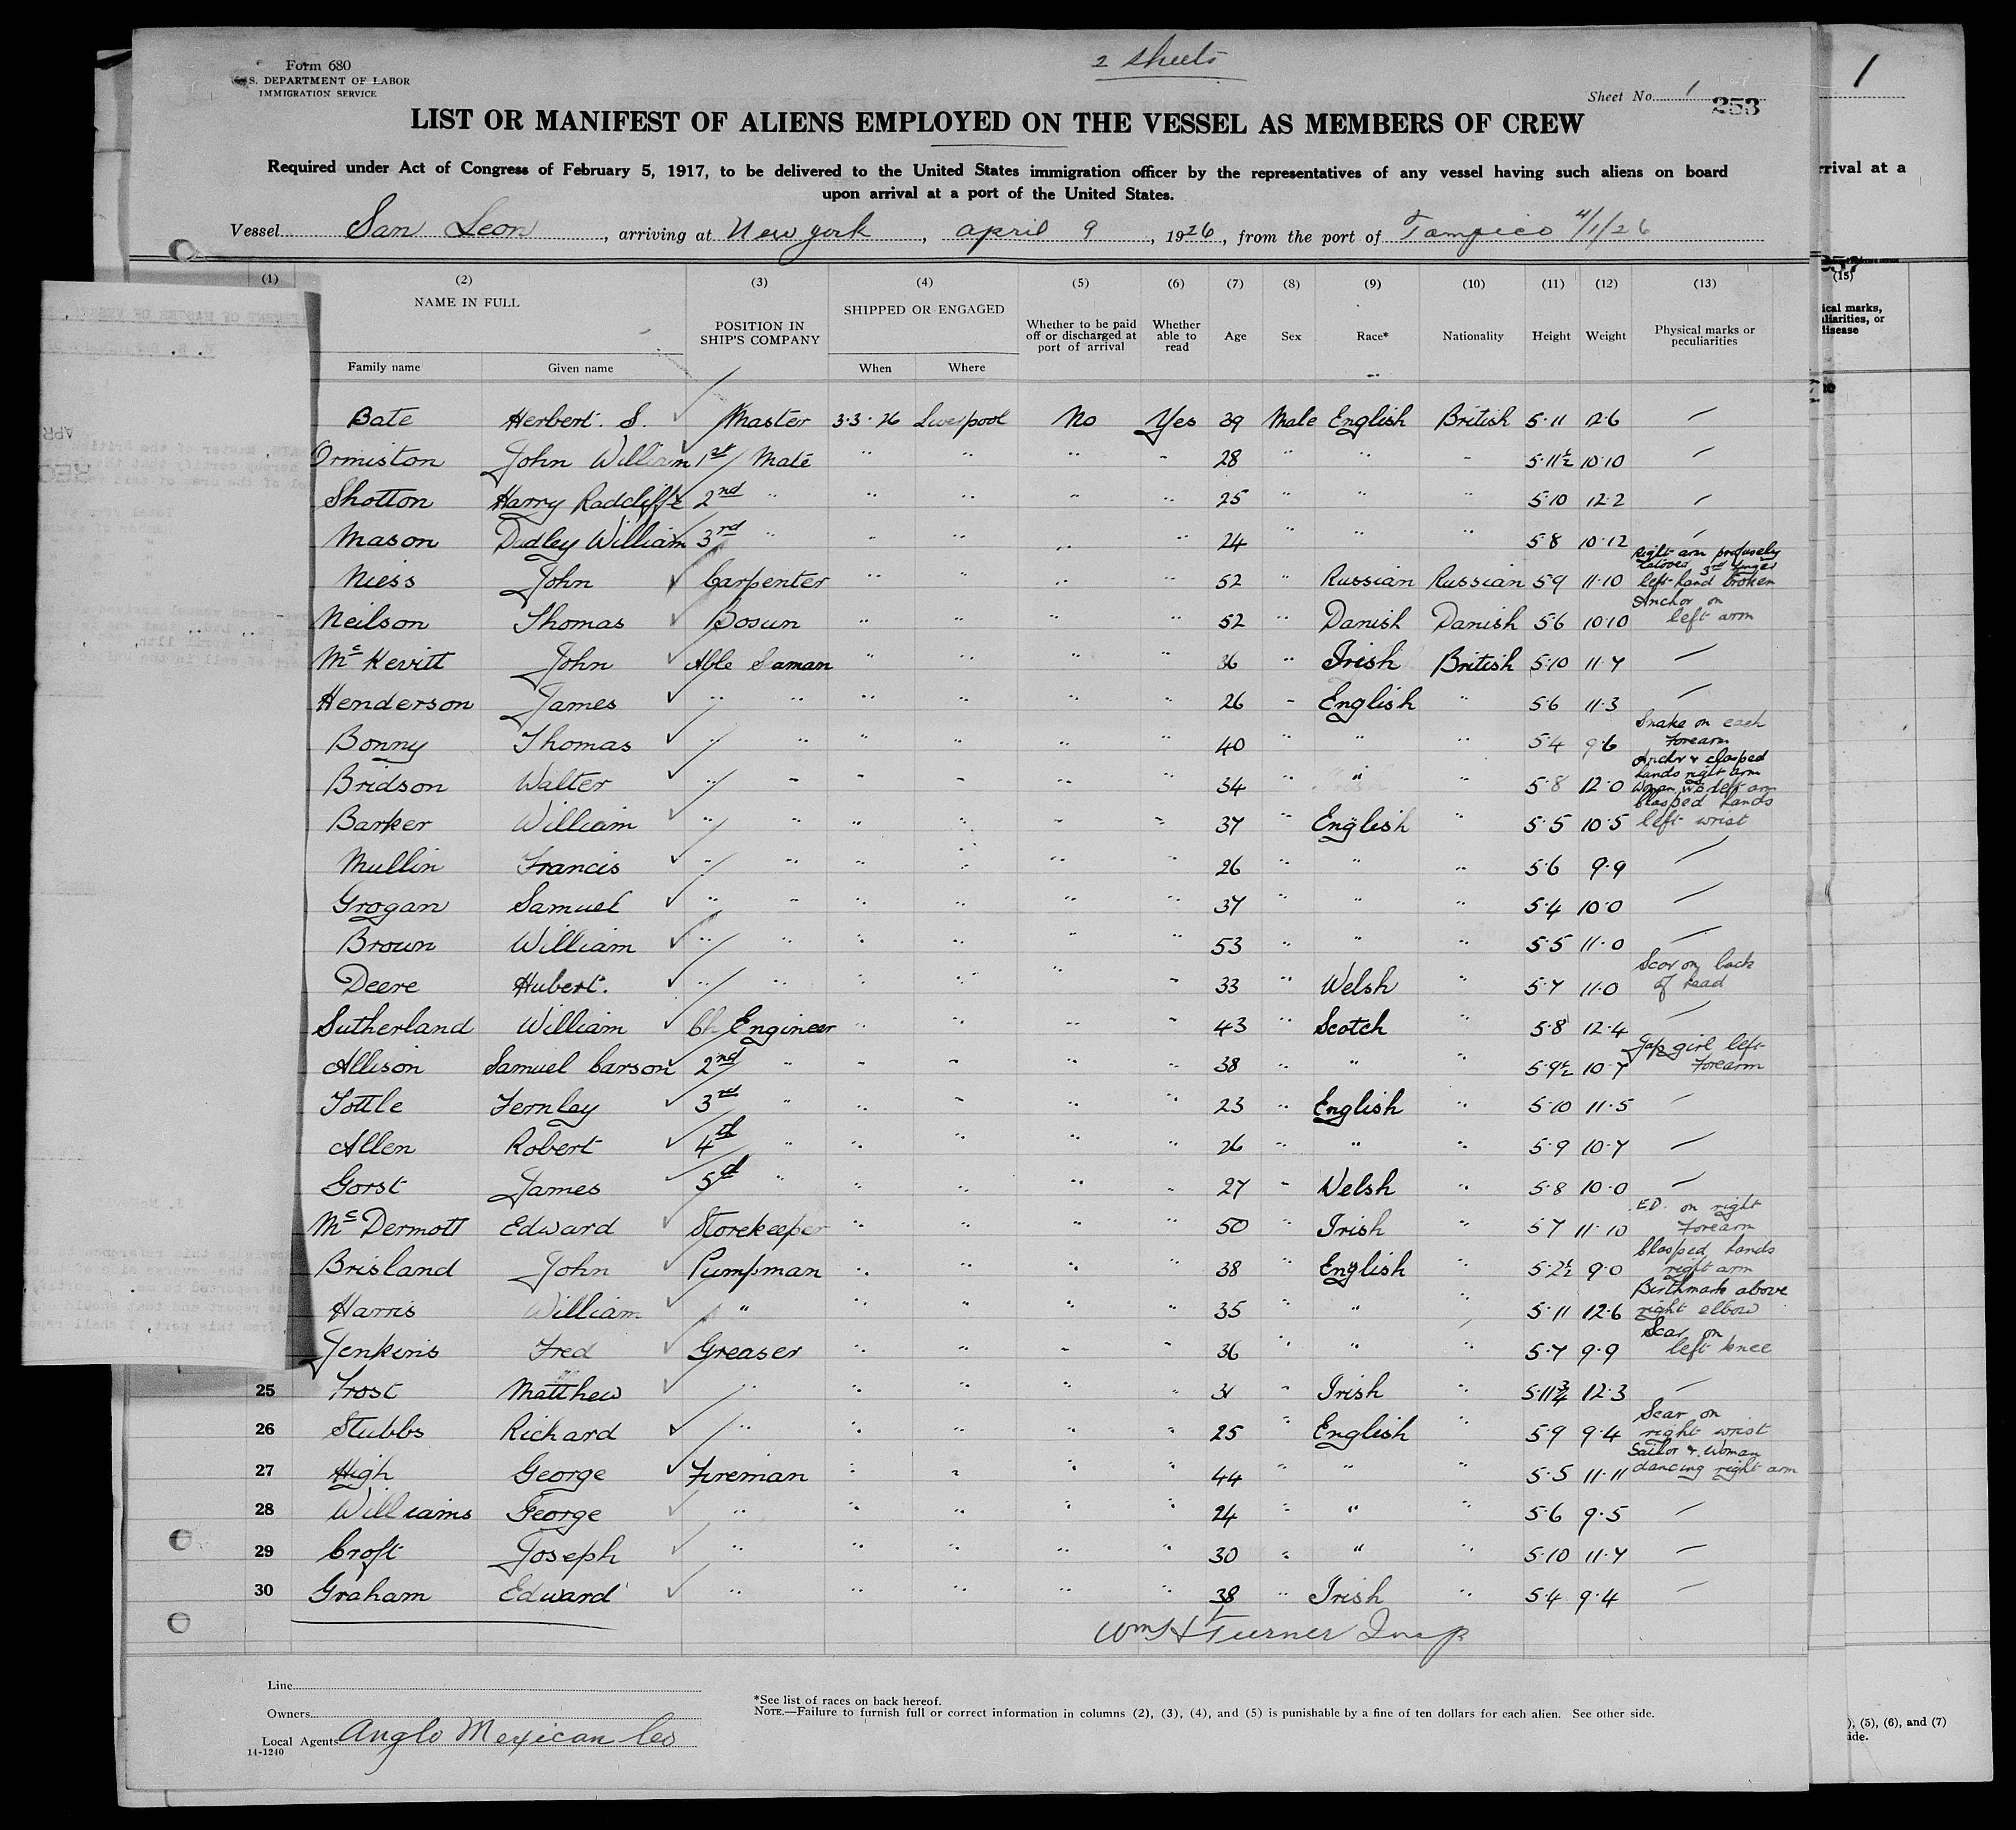 Form 680
U.S. DEPARTMENT OF LABOR
IMMIGRATION SERVICE
2 sheets
Sheet No. 1
253
LIST OR MANIFEST OF ALIENS EMPLOYED ON THE VESSEL AS MEMBERS OF CREW
Required under Act of Congress of February 5, 1917, to be delivered to the United States immigration officer by the representatives of any vessel having such aliens on board
upon arrival at a port of the United States.
Vessel San Leon, arriving at New york, april 9, 1926, from the port of Tampico 4/1/26
(1) (2) (3) (4) (5) (6) (7) (8) (9) (10) (11) (12) (13)
NAME IN FULL POSITION IN SHIP'S COMPANY SHIPPED OR ENGAGED Whether to be paid off or discharged at port of arrival Whether able to read Age Sex Race* Nationality Height Weight Physical marks or peculiarities
Family name Given name When Where
Bate Herbert. S. Master 3·3·26 Liverpool No Yes 39 Male English British 5·11 12·6 —
Ormiston John William 1st Mate " " " " 28 " " " 5·11½ 10·10 —
Shotton Harry Radcliffe 2nd " " " " " 25 " " " 5·10 12·2 —
Mason Dudley William 3rd " " " " " 24 " " " 5·8 10·12 —
Niess John Carpenter " " " " 52 " Russian Russian 5·9 11·10 Right arm profusely tatooed 3rd finger left hand broken
Neilson Thomas Bosun " " " " 52 " Danish Danish 5·6 10·10 Anchor on left arm
Mc Kevitt John Able Saman " " " " 36 " Irish British 5·10 11·7 —
Henderson James " " " " " " 26 " English " 5·6 11·3 —
Bonny Thomas " " " " " " 40 " " " 5·4 9·6 Snake on each Forearm
Bridson Walter " " " " " " 34 " " " 5·8 12·0 Anchor & clasped hands right arm Woman W.B left arm
Barker William " " " " " " 37 " English " 5·5 10·5 Clasped hands left wrist
Mullin Francis " " " " " " 26 " " " 5·6 9·9 —
Grogan Samuel " " " " " " 37 " " " 5·4 10·0 —
Brown William " " " " " " 53 " " " 5·5 11·0 —
Deere Hubert. " " " " " " 33 " Welsh " 5·7 11·0 Scar on back of head
Sutherland William Ch Engineer " " " " 43 " Scotch " 5·8 12·4 —
Allison Samuel Carson 2nd " " " " " 38 " " " 5·9½ 10·7 Jap girl left Forearm
Tottle Fernley 3rd " " " " " 23 " English " 5·10 11·5 —
Allen Robert 4th " " " " " 26 " " " 5·9 10·7 —
Gorst James 5th " " " " " 27 " Welsh " 5·8 10·0 —
Mc Dermott Edward Storekeeper " " " " 50 " Irish " 5·7 11·10 E.D. on right Forearm
Brisland John Pumpman " " " " 38 " English " 5·2½ 9·0 Clasped hands right arm
Harris William " " " " " 35 " " " 5·11 12·6 Birthmark above right elbow
Jenkins Fred Greaser " " " " 36 " " " 5·7 9·9 Scar on left knee
25 Frost Matthew " " " " " 31 " Irish " 5·11¾ 12·3 —
26 Stubbs Richard " " " " " 25 " English " 5·9 9·4 Scar on right wrist
27 High George Fireman " " " " 44 " " " 5·5 11·11 Sailor & Woman dancing right arm
28 Williams George " " " " " 24 " " " 5·6 9·5 —
29 Croft Joseph " " " " " 30 " " " 5·10 11·7 —
30 Graham Edward " " " " " 38 " Irish " 5·4 9·4 —
Wm H Turner Insp
Line
Owners
Local Agents Anglo Mexican Co
14-1240
*See list of races on back hereof.
NOTE.—Failure to furnish full or correct information in columns (2), (3), (4), and (5) is punishable by a fine of ten dollars for each alien. See other side.
1
rrival at a
(15)
ical marks,
liarities, or
disease
), (5), (6), and (7)
ide.